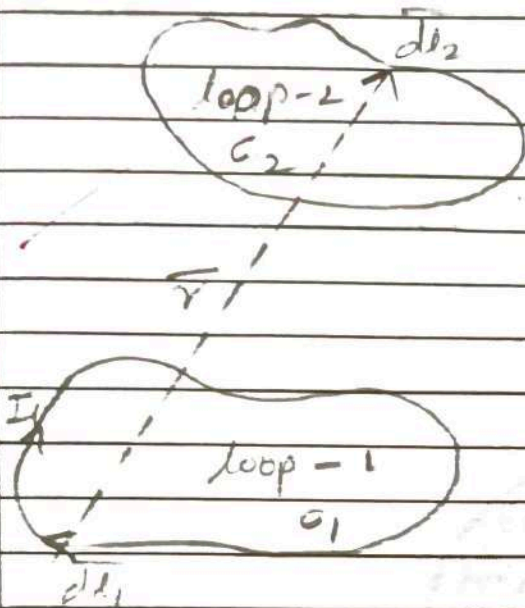 dl₂
loop-2
C₂
r
I₁
loop - 1
C₁
dl₁